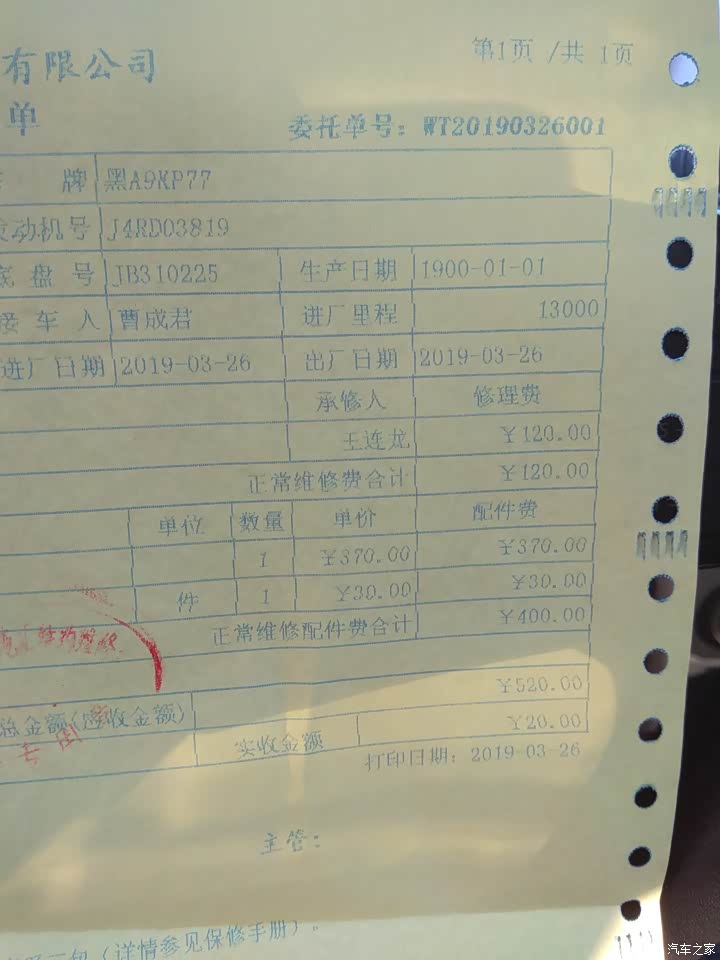 有限公司
第1页 /共 1页
单
委托单号：WT20190326001
牌 黑A9KP77
发动机号 J4RD03819
底盘号 JB310225 生产日期 1900-01-01
接车人 曹成君 进厂里程 13000
进厂日期 2019-03-26 出厂日期 2019-03-26
承修人 修理费
王连龙 ￥120.00
正常维修费合计 ￥120.00
单位 数量 单价 配件费
1 ￥370.00 ￥370.00
件 1 ￥30.00 ￥30.00
正常维修配件费合计 ￥400.00
￥520.00
总金额(应收金额) ￥20.00
实收金额
专用
打印日期：2019-03-26
主管：
三包（详情参见保修手册）。
汽车之家